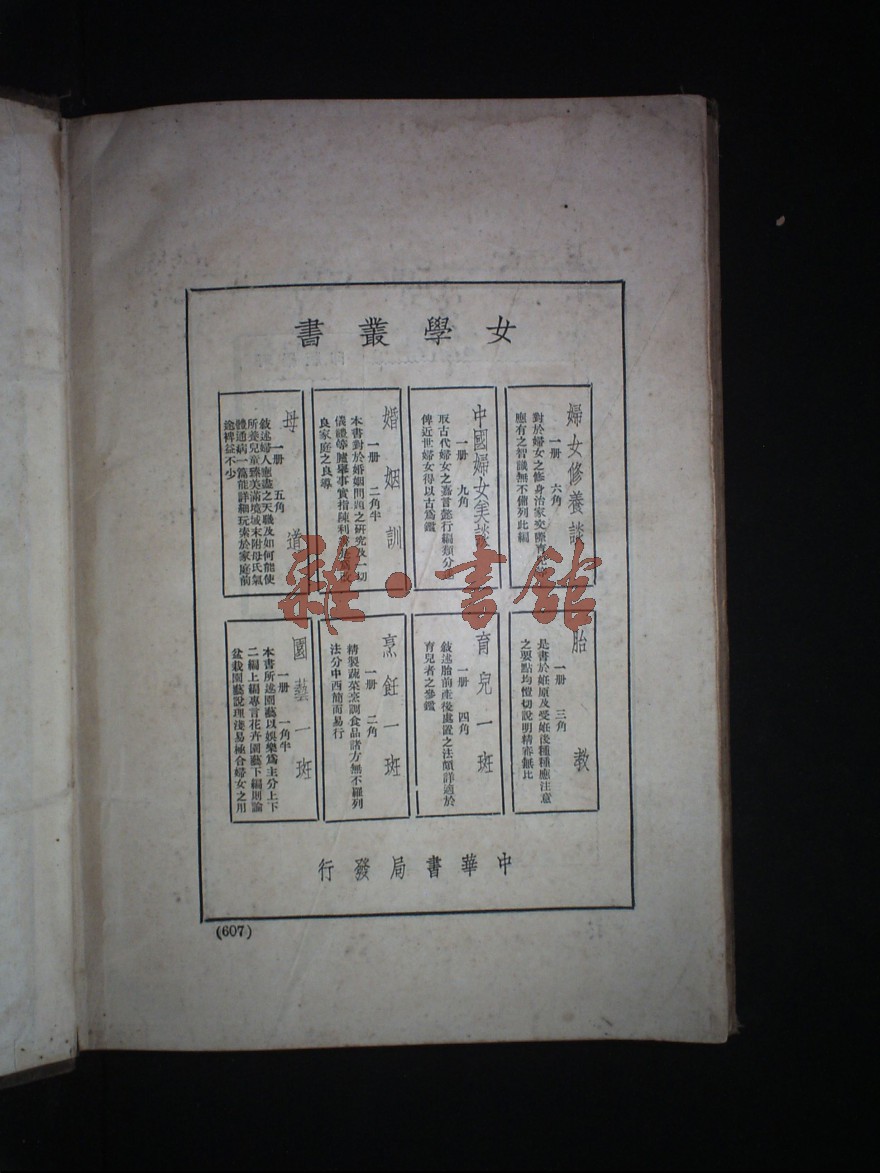 女學叢書
婦女修養談
一册 六角
對於婦女之修身治家交際育兒
應有之智識無不備列此編
中國婦女美談
一册 九角
取古代婦女之嘉言懿行編類分
俾近世婦女得以古為鑑
婚姻訓
一册 二角半
本書對於婚姻問題之研究及一切
儀禮等臚舉事實指陳利
良家庭之良導
母道
一册 五角
敍述婦人應盡之天職及如何能使
所養兒童臻美滿境域末附母氏氣
體通病一篇能詳細玩索於家庭前
途裨益不少
胎教
一册 三角
是書於妊原及受妊後種種應注意
之要點均愷切說明精審無比
育兒一斑
一册 四角
敍述胎前產後處置之法頗詳適於
育兒者之參鑑
烹飪一斑
一册 二角
精製蔬菜烹調食品諸方無不羅列
法分中西簡而易行
園藝一斑
一册 一角半
本書所述園藝以娛樂為主分上下
二編上編專言花卉園藝下編則論
盆栽園藝說理淺易極合婦女之用
中華書局發行
(607)
雜·書館